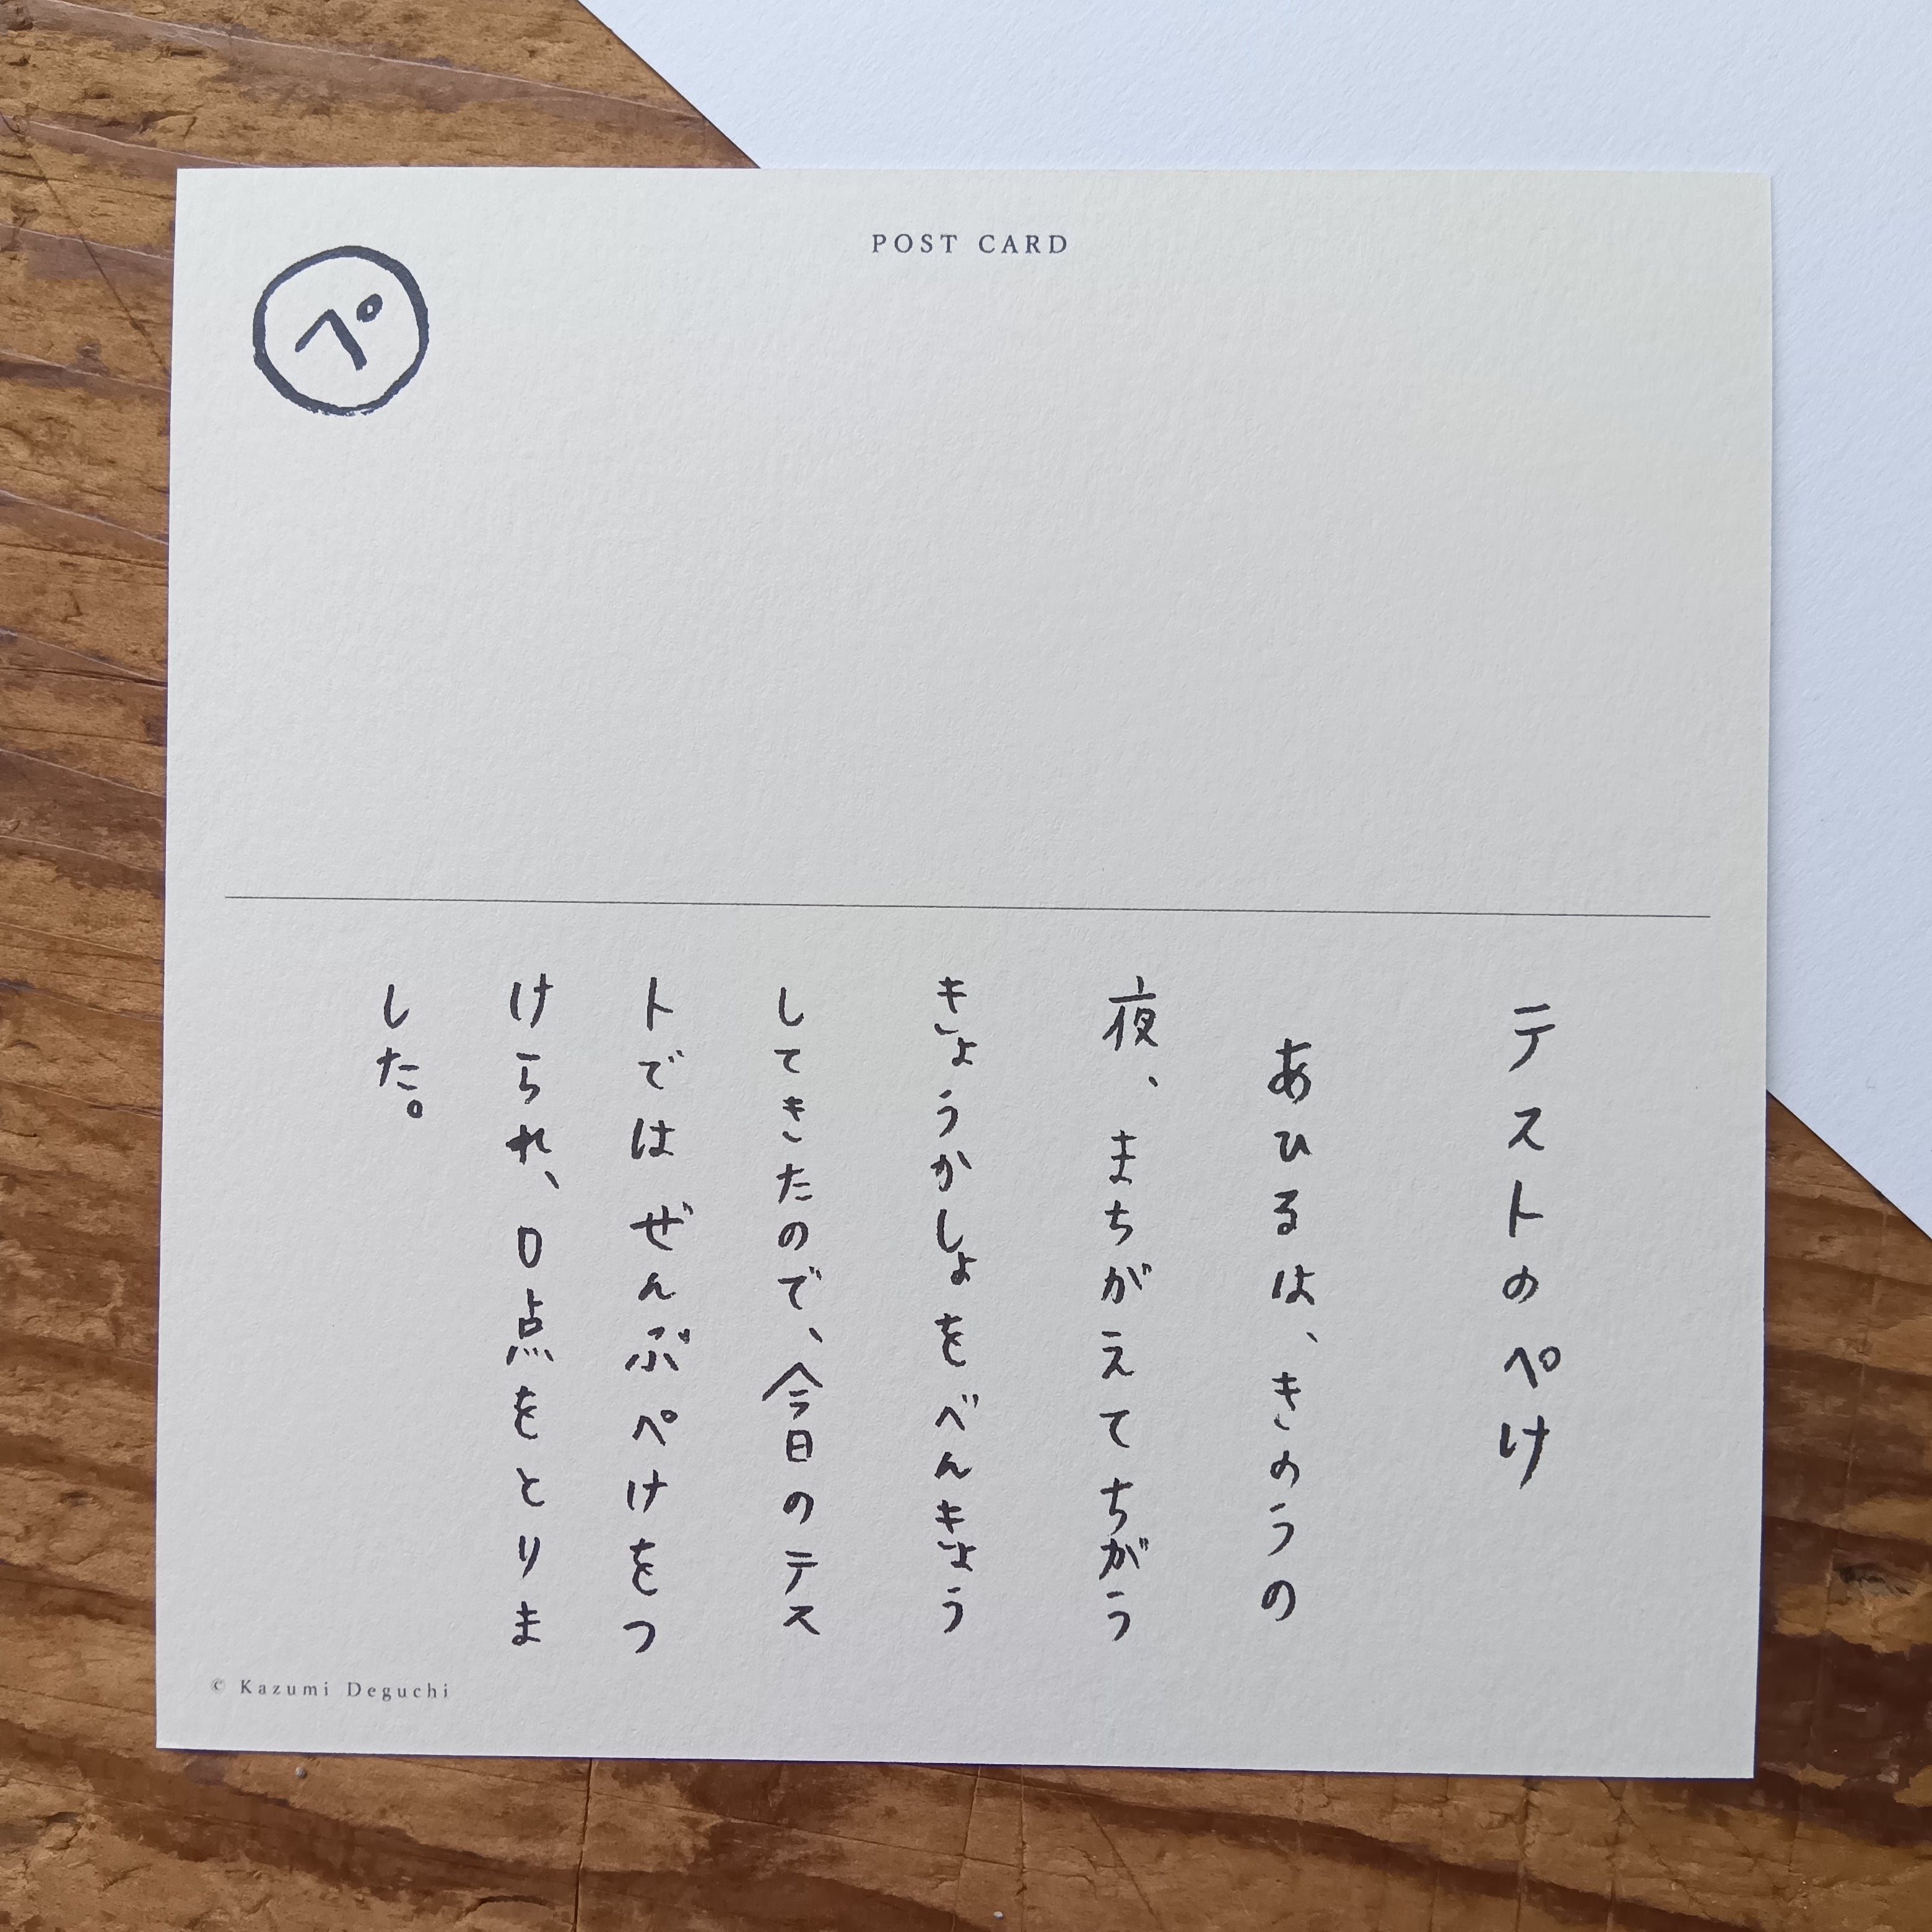 POST CARD
ペ
テストのペけ
あひるは、きのうの
夜、まちがえてちがう
きょうかしょをべんきょう
してきたので、今日のテス
トではぜんぶペけをつ
けられ、0点をとりま
した。
© Kazumi Deguchi